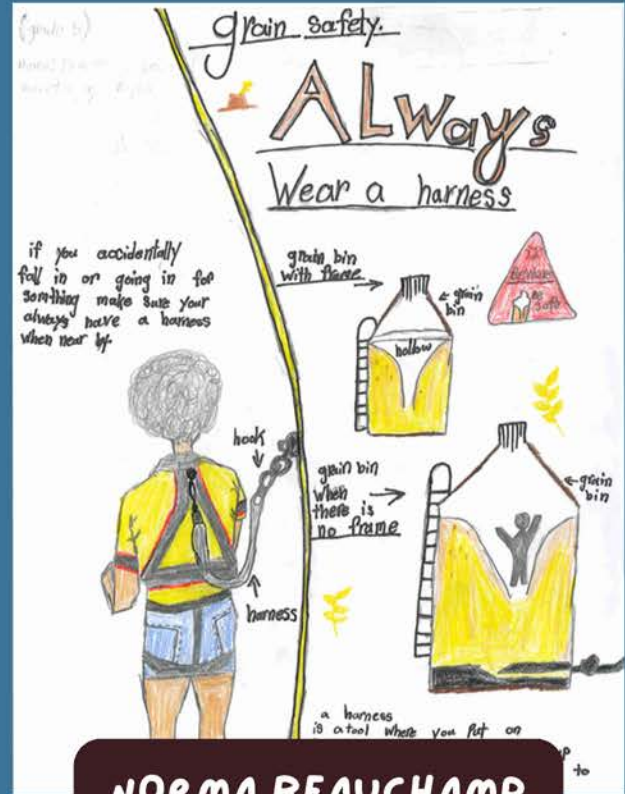 (grade 5)
grain safety.
ALWays
Wear a harness
if you accidentally
fall in or going in for
somthing make sure your
always have a harness
when near by.
grain bin
with frame
grain
bin
hollow
Be
Safe
hook
harness
grain bin
when
there is
no frame
grain
bin
a harness
is a tool where you Put on
up
to
NORMA BEAUCHAMP